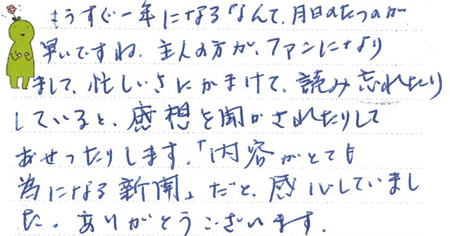 もうすぐ一年になるなんて、月日のたつのが
早いですね、主人の方が、ファンになり
まして、忙しいさにかまけて、読み忘れたり
していると、感想を聞かされたりして
おせったりします。「内容がとても
為になる新聞」だと、感心していまし
た。ありがとうございます。